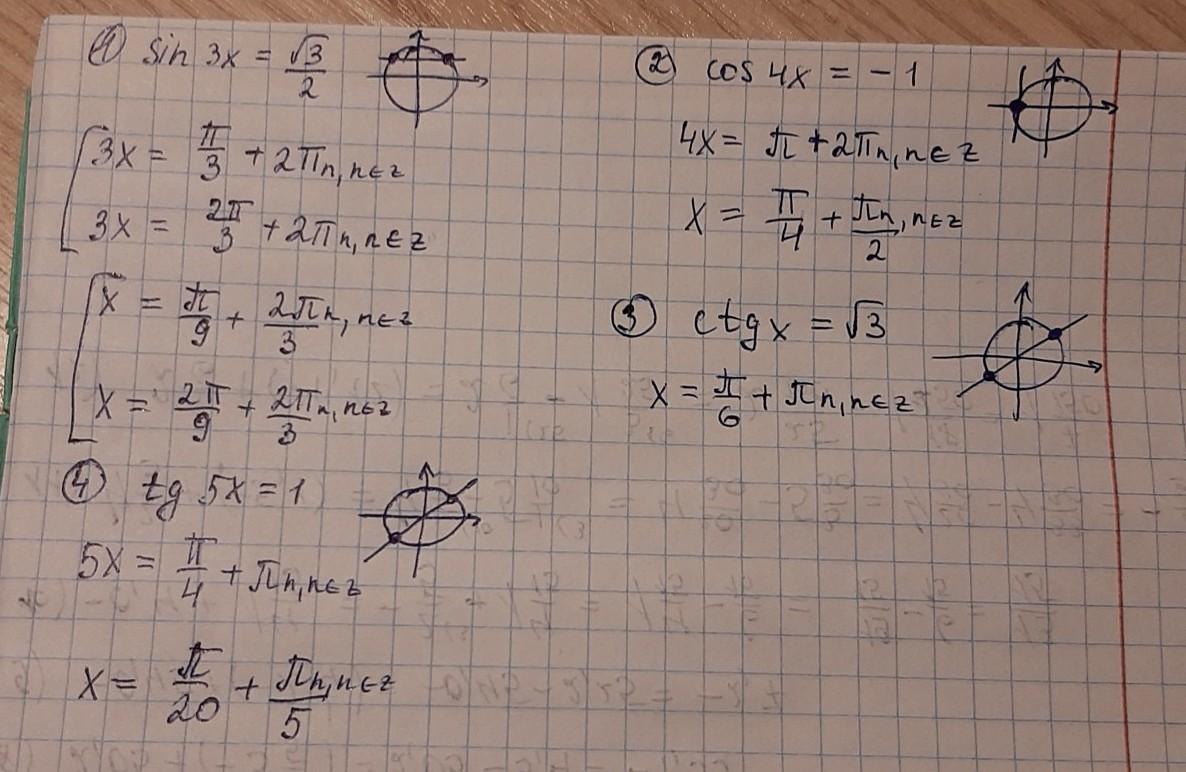 ① sin 3x = √3/2
[ 3x = π/3 + 2πn, n∈z
3x = 2π/3 + 2πn, n∈z
[ x = π/9 + 2πn/3, n∈z
x = 2π/9 + 2πn/3, n∈z
② cos 4x = -1
4x = π + 2πn, n∈z
x = π/4 + πn/2, n∈z
③ ctg x = √3
x = π/6 + πn, n∈z
④ tg 5x = 1
5x = π/4 + πn, n∈z
x = π/20 + πn/5, n∈z